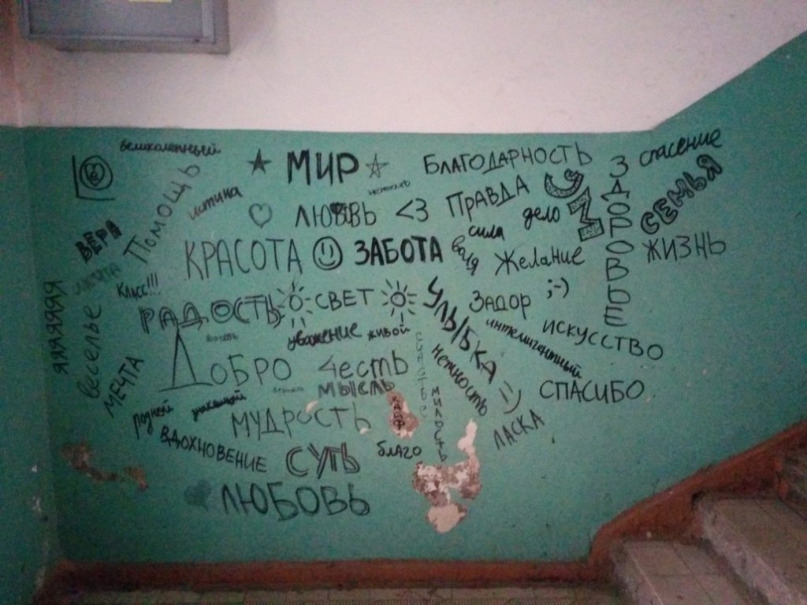 великолепный
★ МИР ☆
БЛАГОДАРНОСТЬ
спасение
ПОМОЩЬ
истина
ПРАВДА
УМ
ЗДОРОВЬЕ
СЕМЬЯ
ВЕРА
♡ ЛЮБОВЬ <3
сила
дело
КРАСОТА ☺ ЗАБОТА
воля
Желание
ЖИЗНЬ
мечта
КЛАСС!!!
ЯЯЯЯЯЯЯ
веселье
РАДОСТЬ
СВЕТ
УЛЫБКА =)
ЗАДОР ;-)
уважение
живой
интеллигентный
ИСКУССТВО
МЕЧТА
ДОБРО
честь
счастье
нежность
СПАСИБО
МЫСЛЬ
МИЛОСТЬ
родной
МУДРОСТЬ
кайф
ЛАСКА
ВДОХНОВЕНИЕ
СУТЬ
благо
ЛЮБОВЬ